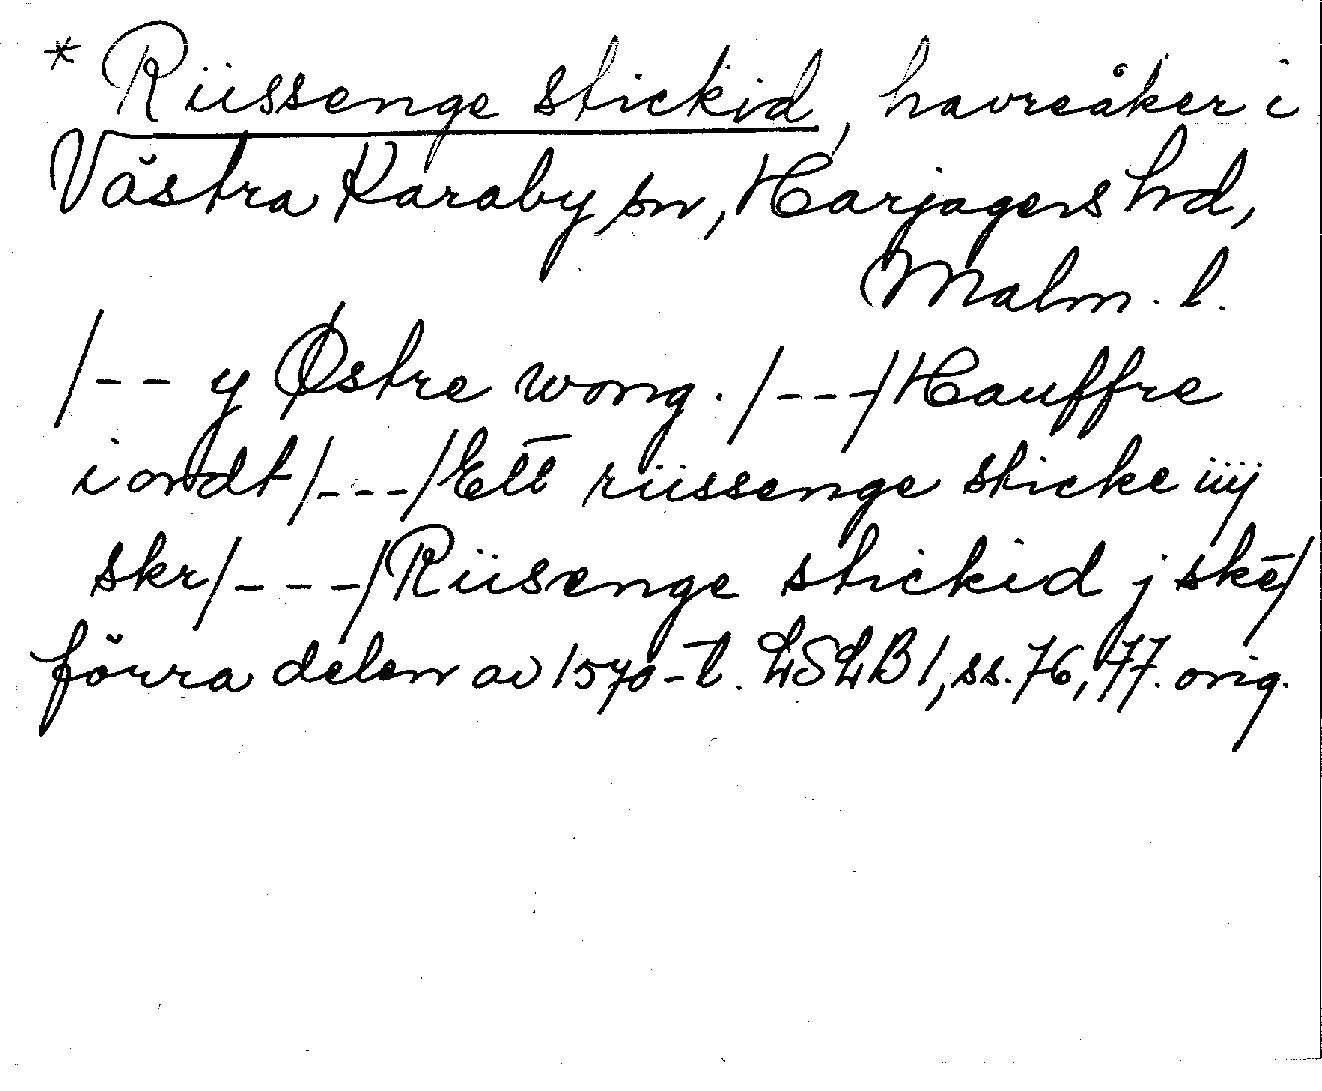 * Riissenge stickid, havreåker i
Västra Karaby sn, Harjagers hd,
Malm. l.
/-- y Østre wong. /---/ Hauffre
iordt /---/ Ett riissenge sticke iiij
skr /---/ Riisenge stickid j skē/
förra delen av 1570-t. LSLB 1, ss. 76, 77. orig.